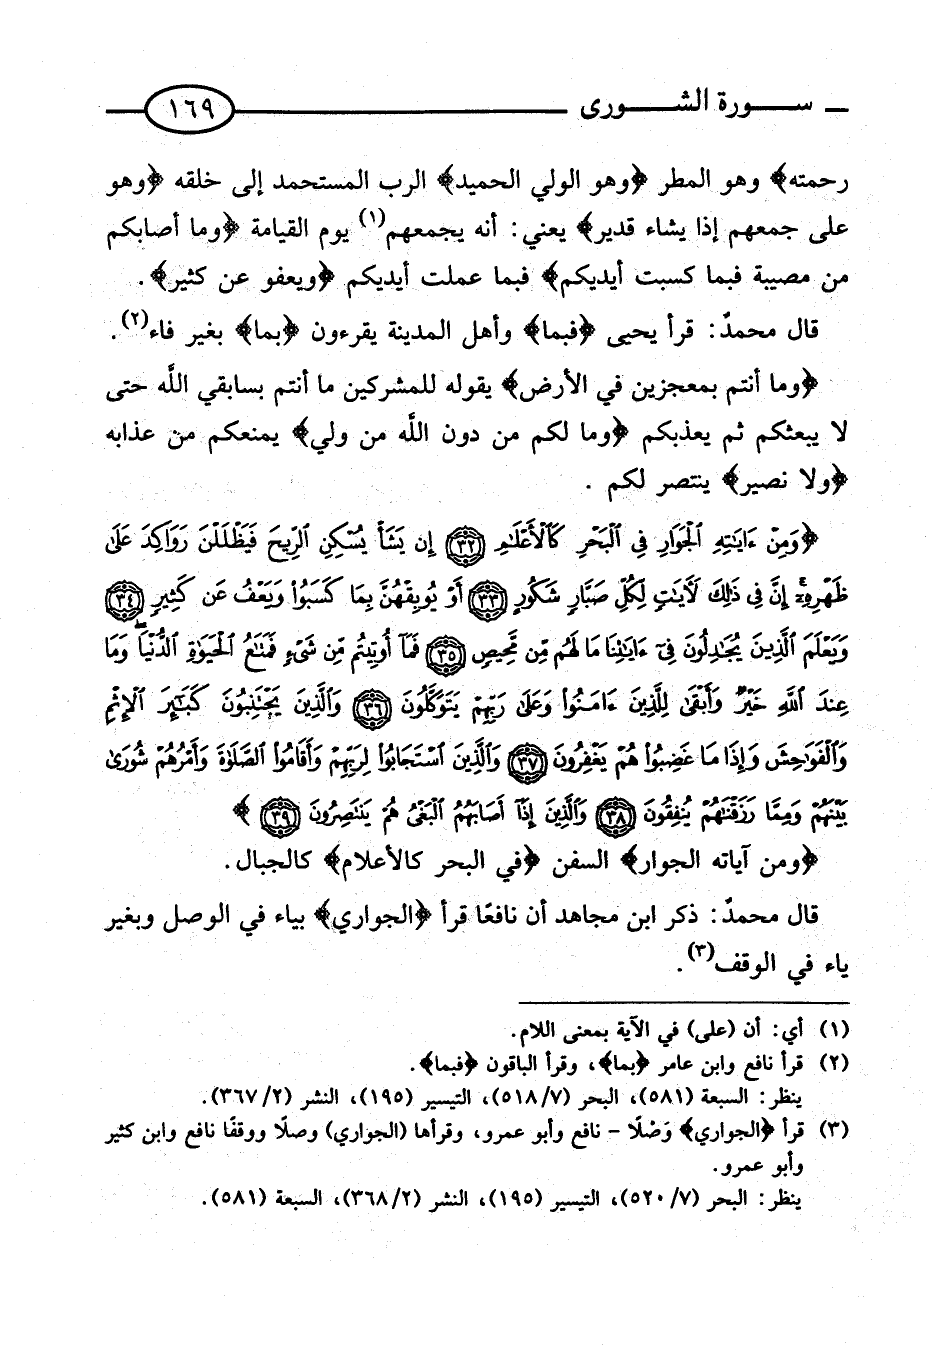 سورة الشورى ١٦٩
رحمته﴾ وهو المطر ﴿وهو الولي الحميد﴾ الرب المستحمد إلى خلقه ﴿وهو
على جمعهم إذا يشاء قدير﴾ يعني: أنه يجمعهم(١) يوم القيامة ﴿وما أصابكم
من مصيبة فبما كسبت أيديكم﴾ فبما عملت أيديكم ﴿ويعفو عن كثير﴾.
قال محمدٌ: قرأ يحيى ﴿فبما﴾ وأهل المدينة يقرءون ﴿بما﴾ بغير فاء(٢).
﴿وما أنتم بمعجزين في الأرض﴾ يقوله للمشركين ما أنتم بسابقي اللَّه حتى
لا يبعثكم ثم يعذبكم ﴿وما لكم من دون اللَّه من ولي﴾ يمنعكم من عذابه
﴿ولا نصير﴾ ينتصر لكم .
﴿وَمِنْ ءَايَٰتِهِ ٱلْجَوَارِ فِى ٱلْبَحْرِ كَٱلْأَعْلَٰمِ ٣٢ إِن يَشَأْ يُسْكِنِ ٱلرِّيحَ فَيَظْلَلْنَ رَوَاكِدَ عَلَىٰ
ظَهْرِهِۦٓ إِنَّ فِى ذَٰلِكَ لَءَايَٰتٍ لِّكُلِّ صَبَّارٍ شَكُورٍ ٣٣ أَوْ يُوبِقْهُنَّ بِمَا كَسَبُوا۟ وَيَعْفُ عَن كَثِيرٍ ٣٤
وَيَعْلَمَ ٱلَّذِينَ يُجَٰدِلُونَ فِىٓ ءَايَٰتِنَا مَا لَهُم مِّن مَّحِيصٍ ٣٥ فَمَآ أُوتِيتُم مِّن شَىْءٍ فَمَتَٰعُ ٱلْحَيَوٰةِ ٱلدُّنْيَا ۖ وَمَا
عِندَ ٱللَّهِ خَيْرٌ وَأَبْقَىٰ لِلَّذِينَ ءَامَنُوا۟ وَعَلَىٰ رَبِّهِمْ يَتَوَكَّلُونَ ٣٦ وَٱلَّذِينَ يَجْتَنِبُونَ كَبَٰٓئِرَ ٱلْإِثْمِ
وَٱلْفَوَٰحِشَ وَإِذَا مَا غَضِبُوا۟ هُمْ يَغْفِرُونَ ٣٧ وَٱلَّذِينَ ٱسْتَجَابُوا۟ لِرَبِّهِمْ وَأَقَامُوا۟ ٱلصَّلَوٰةَ وَأَمْرُهُمْ شُورَىٰ
بَيْنَهُمْ وَمِمَّا رَزَقْنَٰهُمْ يُنفِقُونَ ٣٨ وَٱلَّذِينَ إِذَآ أَصَابَهُمُ ٱلْبَغْىُ هُمْ يَنتَصِرُونَ ٣٩ ﴾
﴿ومن آياته الجوار﴾ السفن ﴿في البحر كالأعلام﴾ كالجبال.
قال محمدٌ: ذكر ابن مجاهد أن نافعًا قرأ ﴿الجواري﴾ بياء في الوصل وبغير
ياء في الوقف(٣).
(١) أي: أن (على) في الآية بمعنى اللام.
(٢) قرأ نافع وابن عامر ﴿بما﴾، وقرأ الباقون ﴿فبما﴾.
ينظر: السبعة (٥٨١)، البحر (٥١٨/٧)، التيسير (١٩٥)، النشر (٣٦٧/٢).
(٣) قرأ ﴿الجواري﴾ وَصْلًا - نافع وأبو عمرو، وقرأها (الجواري) وصلًا ووقفًا نافع وابن كثير
وأبو عمرو.
ينظر: البحر (٥٢٠/٧)، التيسير (١٩٥)، النشر (٣٦٨/٢)، السبعة (٥٨١).